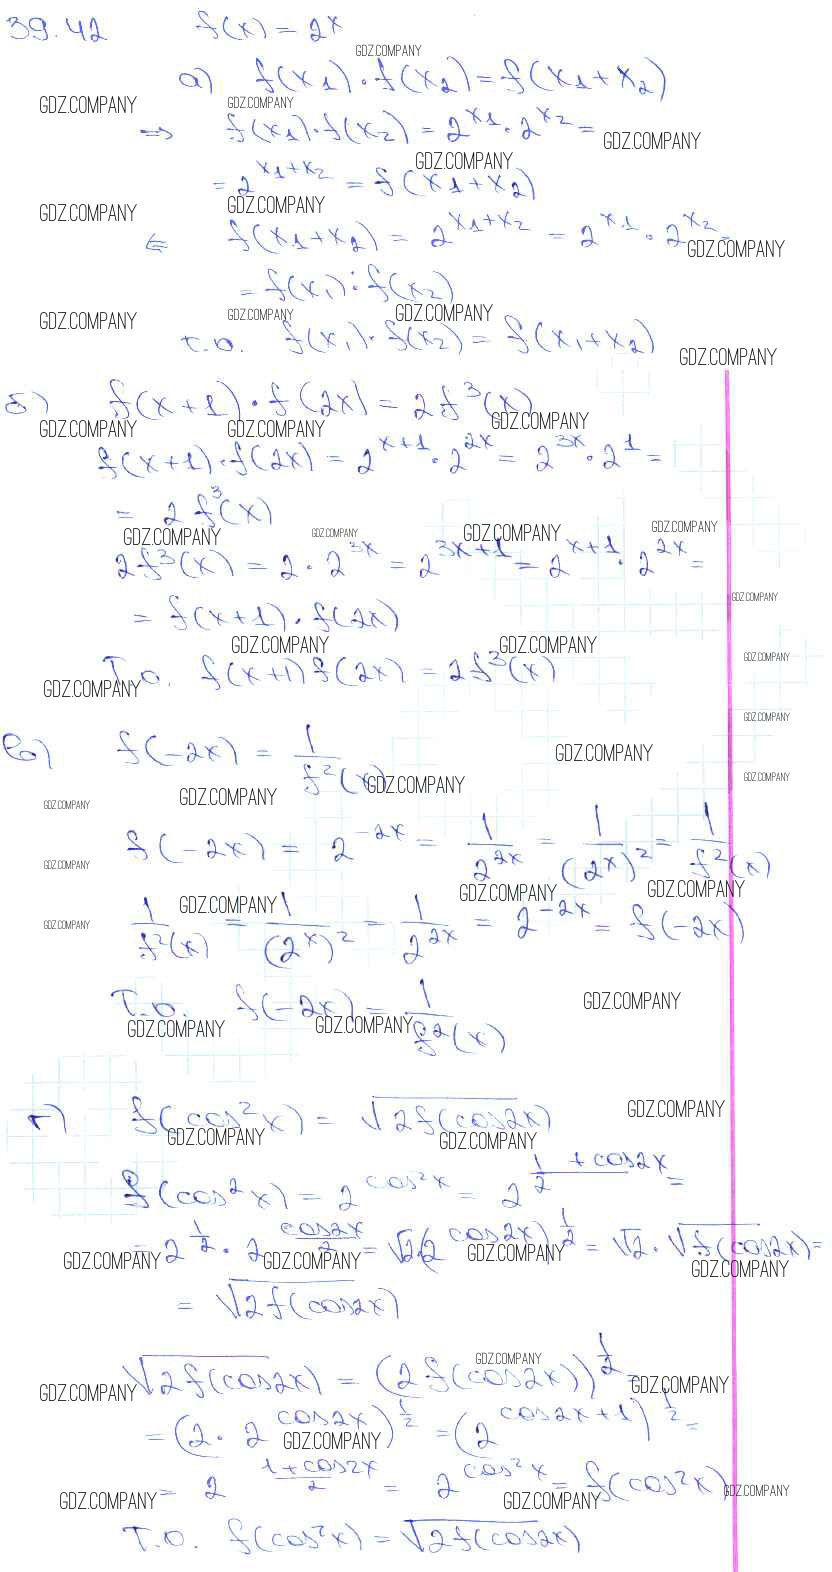 39.42 f(x) = 2^x
а) f(x1)·f(x2) = f(x1+x2)
⇒ f(x1)·f(x2) = 2^x1 · 2^x2 =
= 2^(x1+x2) = f(x1+x2)
⇐ f(x1+x2) = 2^(x1+x2) = 2^x1 · 2^x2 =
= f(x1)·f(x2)
т.о. f(x1)·f(x2) = f(x1+x2)
б) f(x+1)·f(2x) = 2f³(x)
f(x+1)·f(2x) = 2^(x+1) · 2^(2x) = 2^(3x) · 2^1 =
= 2f³(x)
2f³(x) = 2 · 2^(3x) = 2^(3x+1) = 2^(x+1) · 2^(2x) =
= f(x+1)·f(2x)
Т.о. f(x+1) f(2x) = 2f³(x)
в) f(-2x) = 1/f²(x)
f(-2x) = 2^(-2x) = 1/2^(2x) = 1/(2^x)² = 1/f²(x)
1/f²(x) = 1/(2^x)² = 1/2^(2x) = 2^(-2x) = f(-2x)
Т.о. f(-2x) = 1/f²(x)
г) f(cos²x) = √(2f(cos2x))
f(cos²x) = 2^(cos²x) = 2^((1+cos2x)/2) =
= 2^(1/2) · 2^(cos2x/2) = √2·(2^(cos2x))^(1/2) = √2 · √(f(cos2x)) =
= √(2f(cos2x))
√(2f(cos2x)) = (2f(cos2x))^(1/2) =
= (2 · 2^(cos2x))^(1/2) = (2^(cos2x+1))^(1/2) =
= 2^((1+cos2x)/2) = 2^(cos²x) = f(cos²x)
Т.о. f(cos²x) = √(2f(cos2x))
GDZ.COMPANY